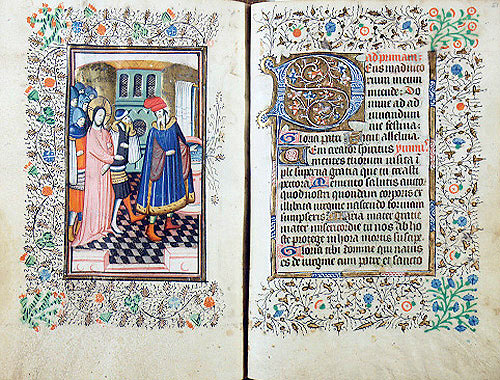 ad primam.
Deus in adiuto
rium meum
intende: Do
mine ad ad
iuuandum
me festina.
Gloria pr̄i Sicut alleluia.
Veni creator spiritus
mentes tuorum visita
ple superna gratia que tu creasti
pectora. Memento salutis auctor
quod nostri quondam corporis ex
illibata virgine nascendo formam
sumpseris. Maria mater gratie
mater misericordie tu nos ab ho
ste protege in hora mortis suscipe.
Gloria tibi domine qui natus
es de uirgine cum patre et sancto